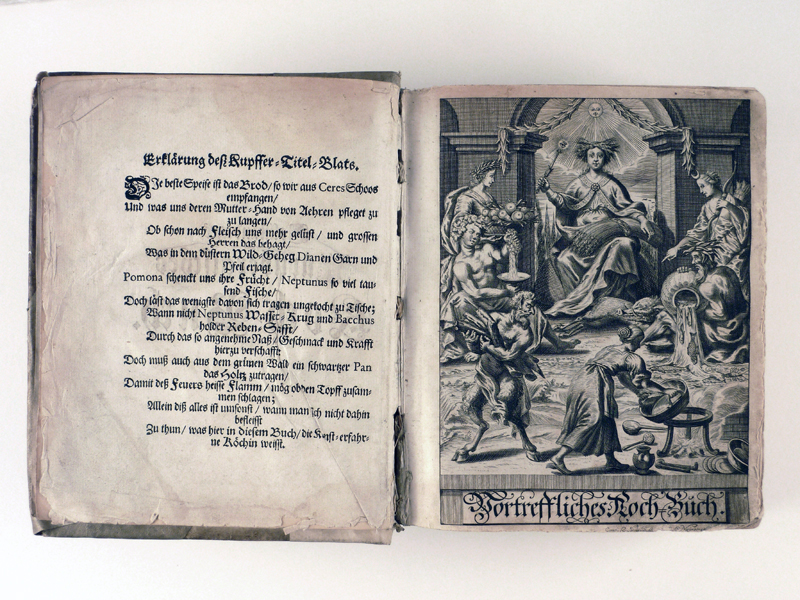 Erklärung deß Kupffer-Titel-Blats.
DIe beste Speise ist das Brod / so wir aus Ceres Schoos
empfangen /
Und was uns deren Mutter-Hand von Aehren pfleget zu
zu langen /
Ob schon nach Fleisch uns mehr gelüst / und grossen
Herren das behagt /
Was in dem düstern Wild-Geheg Dianen Garn und
Pfeil erjagt.
Pomona schenckt uns ihre Frücht / Neptunus so viel tau-
send Fische /
Doch läst das wenigste davon sich tragen ungekocht zu Tische;
Wann nicht Neptunus Wasser-Krug und Bacchus
holder Reben-Safft /
Durch das so angenehme Naß / Geschmack und Krafft
hierzu verschafft;
Doch muß auch aus dem grünen Wald ein schwartzer Pan
das Holtz zutragen /
Damit deß Feuers heisse Flamm / mög oben Topff zusam-
men schlagen;
Allein diß alles ist umsonst / wann man sich nicht dahin
befleisst
Zu thun / was hier in diesem Buch / die Kunst-erfahr-
ne Köchin weisst.
Vortreffliches Koch-Buch.